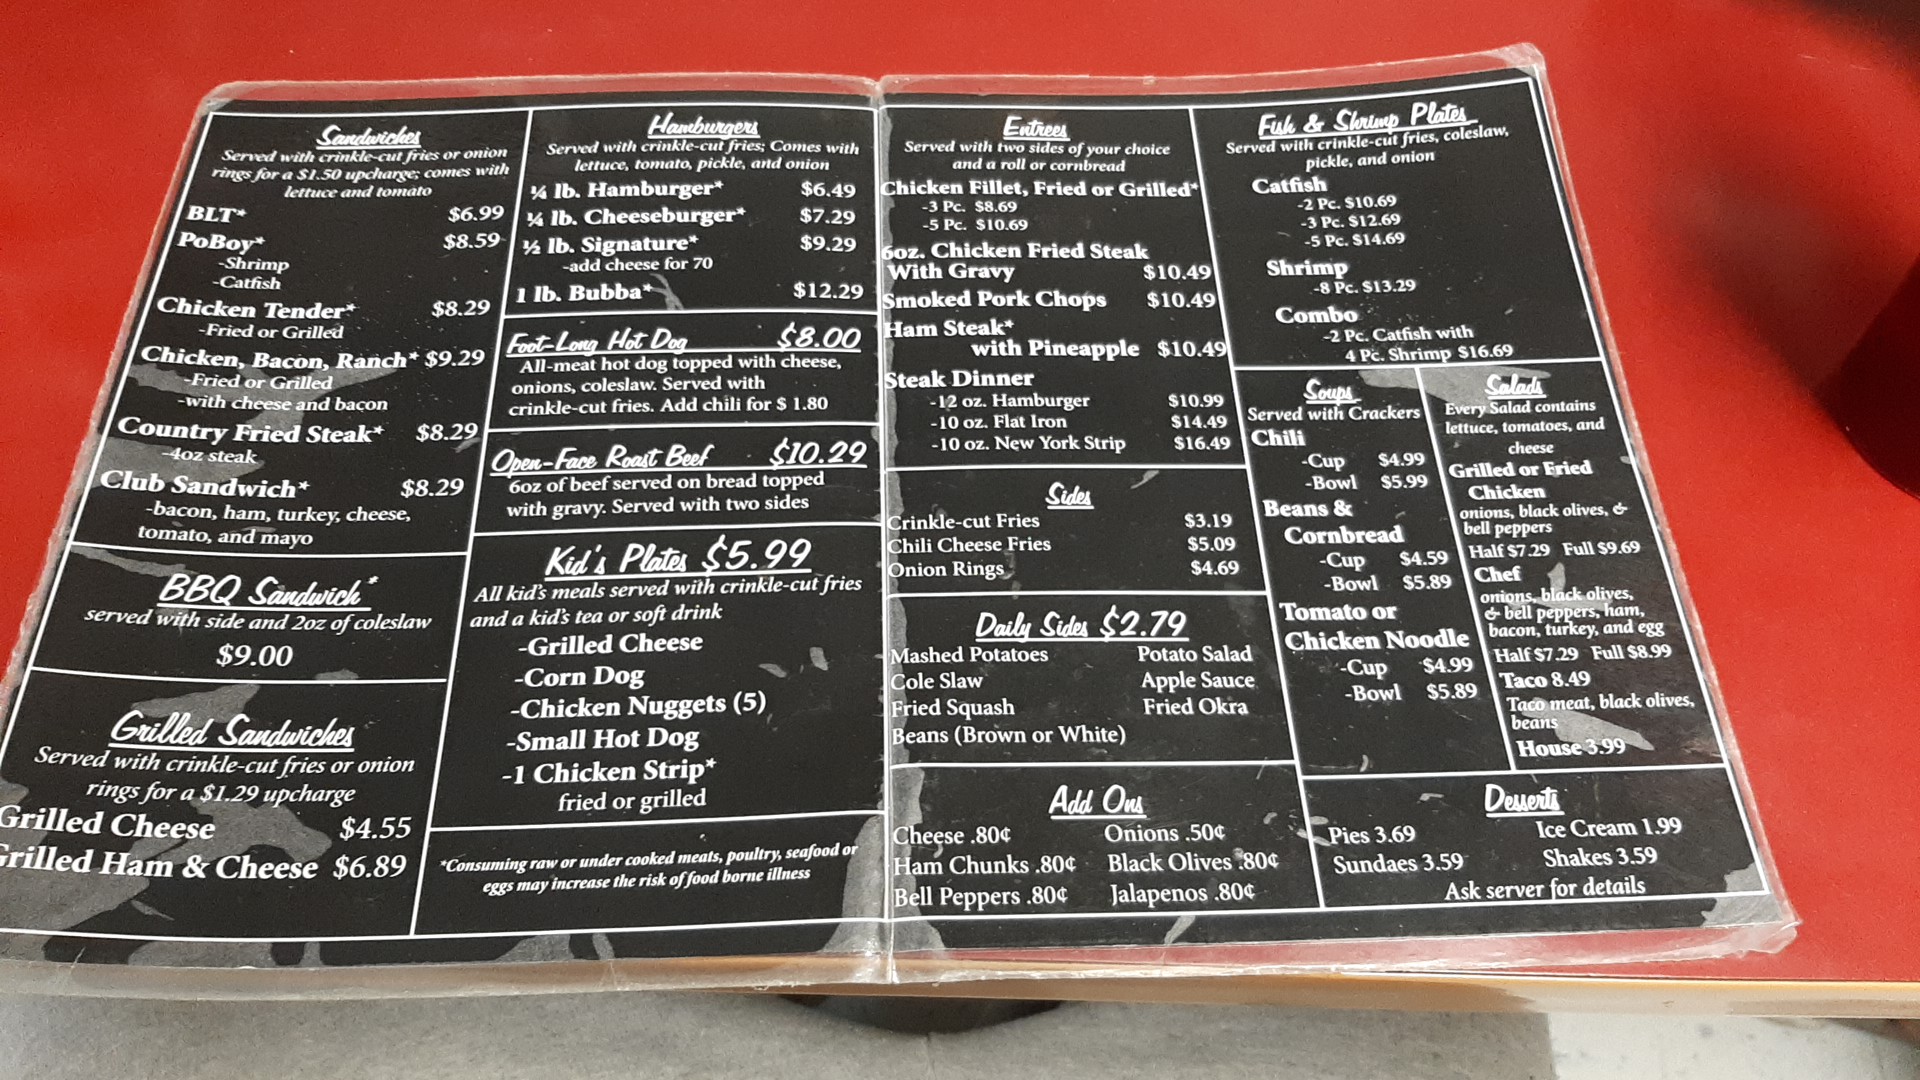 Sandwiches
Served with crinkle-cut fries or onion
rings for a $1.50 upcharge; comes with
lettuce and tomato
BLT* $6.99
PoBoy* $8.59
-Shrimp
-Catfish
Chicken Tender* $8.29
-Fried or Grilled
Chicken, Bacon, Ranch* $9.29
-Fried or Grilled
-with cheese and bacon
Country Fried Steak* $8.29
-4oz steak
Club Sandwich* $8.29
-bacon, ham, turkey, cheese,
tomato, and mayo
BBQ Sandwich*
served with side and 2oz of coleslaw
$9.00
Grilled Sandwiches
Served with crinkle-cut fries or onion
rings for a $1.29 upcharge
Grilled Cheese $4.55
Grilled Ham & Cheese $6.89
Hamburgers
Served with crinkle-cut fries; Comes with
lettuce, tomato, pickle, and onion
¼ lb. Hamburger* $6.49
¼ lb. Cheeseburger* $7.29
½ lb. Signature* $9.29
-add cheese for 70
1 lb. Bubba* $12.29
Foot-Long Hot Dog $8.00
All-meat hot dog topped with cheese,
onions, coleslaw. Served with
crinkle-cut fries. Add chili for $ 1.80
Open-Face Roast Beef $10.29
6oz of beef served on bread topped
with gravy. Served with two sides
Kid's Plates $5.99
All kid's meals served with crinkle-cut fries
and a kid's tea or soft drink
-Grilled Cheese
-Corn Dog
-Chicken Nuggets (5)
-Small Hot Dog
-1 Chicken Strip*
fried or grilled
*Consuming raw or under cooked meats, poultry, seafood or
eggs may increase the risk of food borne illness
Entrees
Served with two sides of your choice
and a roll or cornbread
Chicken Fillet, Fried or Grilled*
-3 Pc. $8.69
-5 Pc. $10.69
6oz. Chicken Fried Steak
With Gravy $10.49
Smoked Pork Chops $10.49
Ham Steak*
with Pineapple $10.49
Steak Dinner
-12 oz. Hamburger $10.99
-10 oz. Flat Iron $14.49
-10 oz. New York Strip $16.49
Sides
Crinkle-cut Fries $3.19
Chili Cheese Fries $5.09
Onion Rings $4.69
Daily Sides $2.79
Mashed Potatoes Potato Salad
Cole Slaw Apple Sauce
Fried Squash Fried Okra
Beans (Brown or White)
Add Ons
Cheese .80¢ Onions .50¢
Ham Chunks .80¢ Black Olives .80¢
Bell Peppers .80¢ Jalapenos .80¢
Fish & Shrimp Plates
Served with crinkle-cut fries, coleslaw,
pickle, and onion
Catfish
-2 Pc. $10.69
-3 Pc. $12.69
-5 Pc. $14.69
Shrimp
-8 Pc. $13.29
Combo
-2 Pc. Catfish with
4 Pc. Shrimp $16.69
Soups
Served with Crackers
Chili
-Cup $4.99
-Bowl $5.99
Beans &
Cornbread
-Cup $4.59
-Bowl $5.89
Tomato or
Chicken Noodle
-Cup $4.99
-Bowl $5.89
Salads
Every Salad contains
lettuce, tomatoes, and
cheese
Grilled or Fried
Chicken
onions, black olives, &
bell peppers
Half $7.29 Full $9.69
Chef
onions, black olives,
& bell peppers, ham,
bacon, turkey, and egg
Half $7.29 Full $8.99
Taco 8.49
Taco meat, black olives,
beans
House 3.99
Desserts
Pies 3.69 Ice Cream 1.99
Sundaes 3.59 Shakes 3.59
Ask server for details